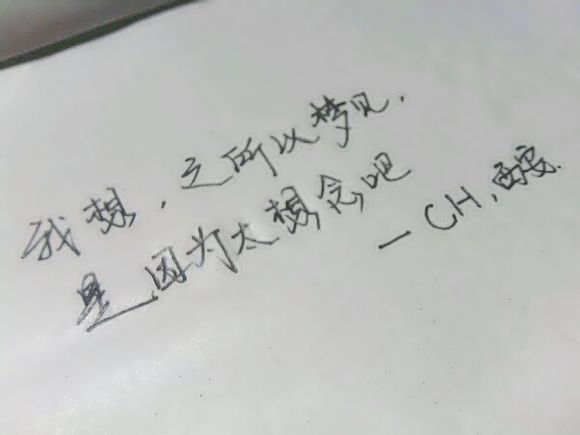 我想，之所以梦见，
是因为太想念吧
— CH，西安.